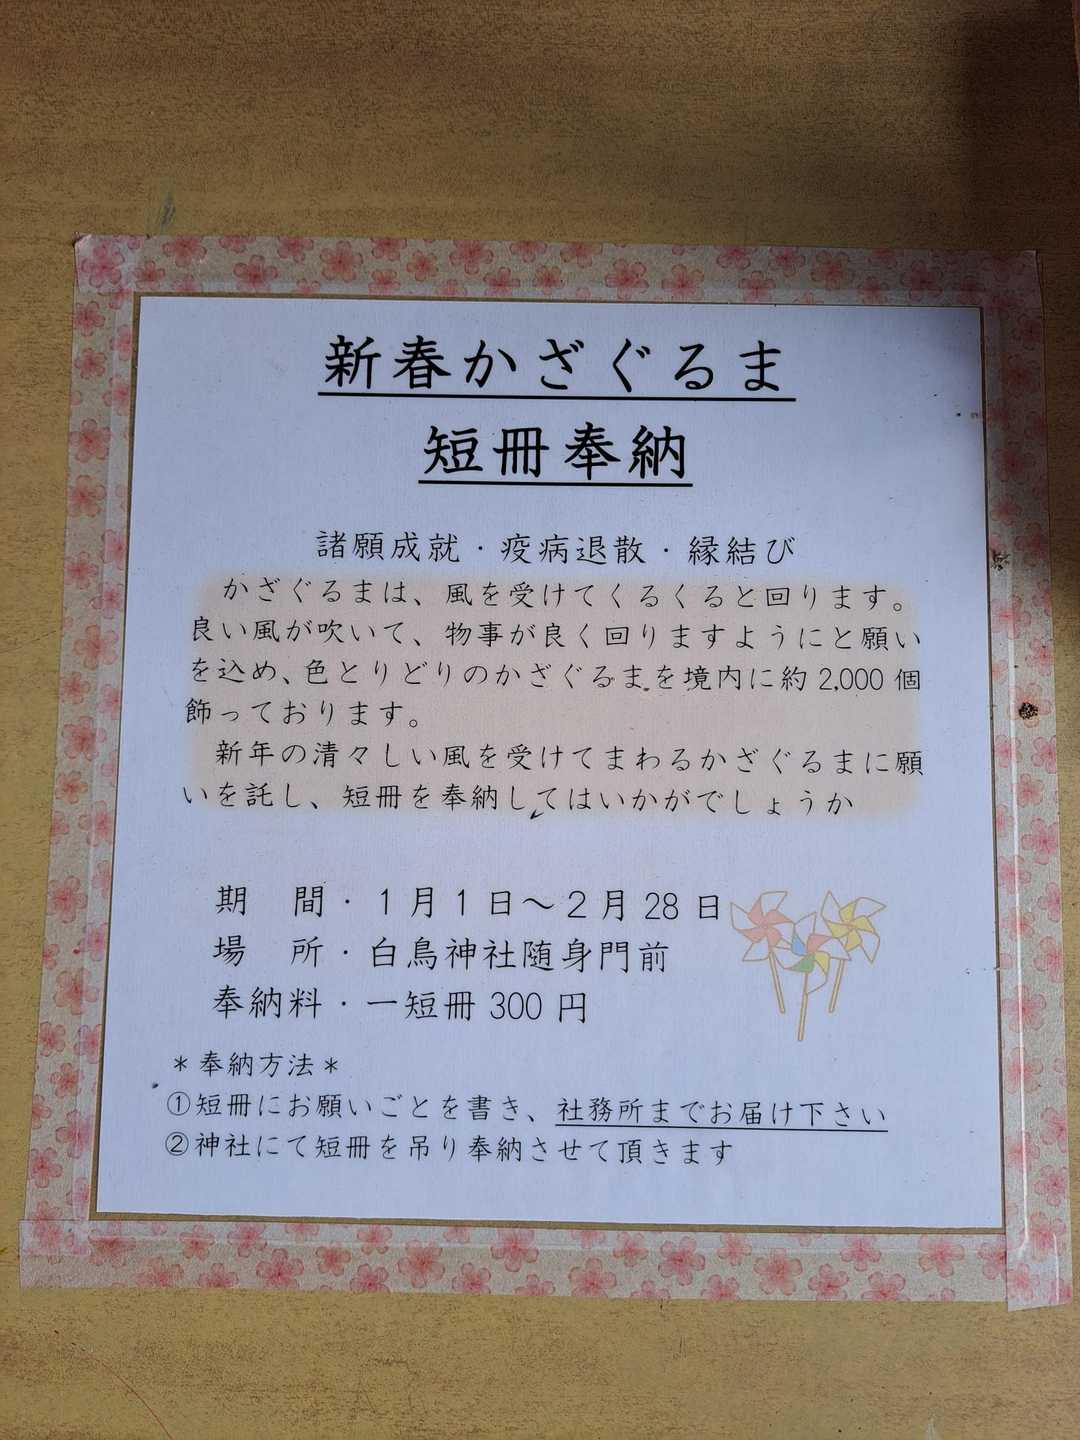 新春かざぐるま
短冊奉納
諸願成就・疫病退散・縁結び
かざぐるまは、風を受けてくるくると回ります。
良い風が吹いて、物事が良く回りますようにと願い
を込め、色とりどりのかざぐるまを境内に約2,000個
飾っております。
新年の清々しい風を受けてまわるかざぐるまに願
いを託し、短冊を奉納してはいかがでしょうか
期　間・1月1日～2月28日
場　所・白鳥神社随身門前
奉納料・一短冊300円
＊奉納方法＊
①短冊にお願いごとを書き、社務所までお届け下さい
②神社にて短冊を吊り奉納させて頂きます